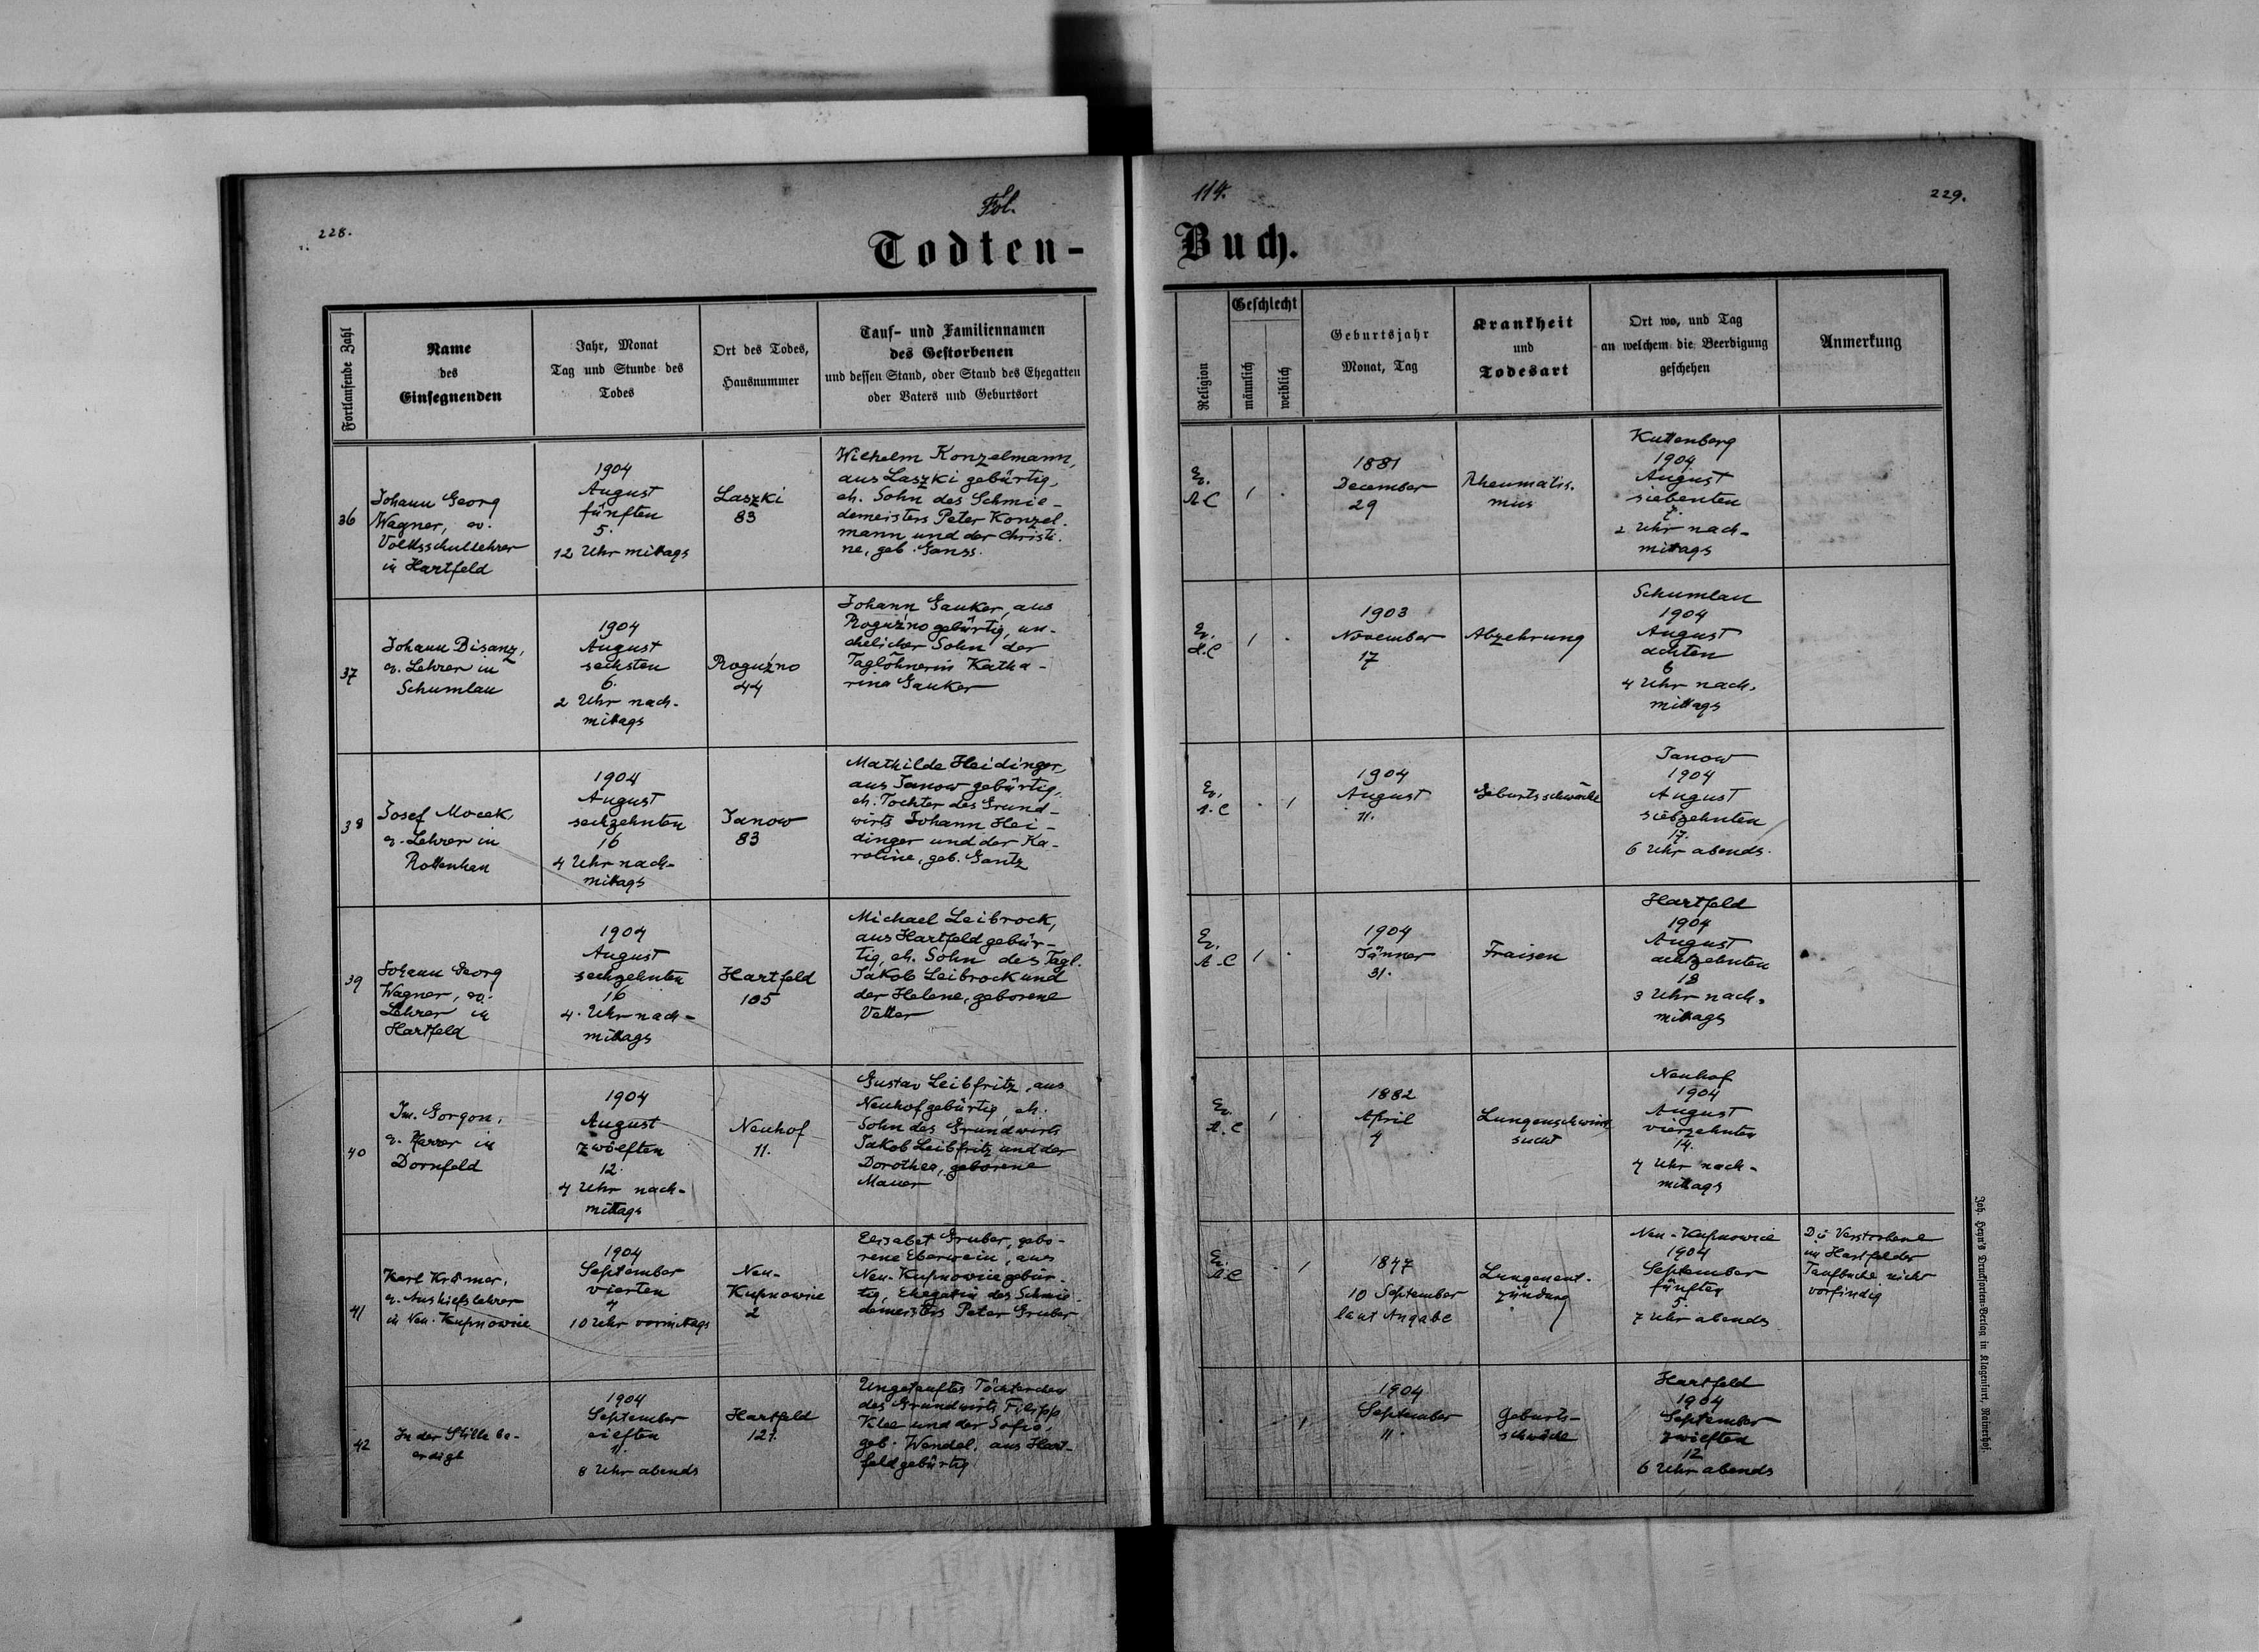 Fol.
114.
228.
229.
Todten-
Buch.
Fortlaufende Zahl
Name
des
Einsegnenden
Jahr, Monat
Tag und Stunde des
Todes
Ort des Todes,
Hausnummer
Tauf- und Familiennamen
des Gestorbenen
und dessen Stand, oder Stand des Ehegatten
oder Vaters und Geburtsort
Religion
Geschlecht
männlich
weiblich
Geburtsjahr
Monat, Tag
Krankheit
und
Todesart
Ort wo, und Tag
an welchem die Beerdigung
geschehen
Anmerkung
36
Johann Georg
Wagner, ev.
Volksschullehrer
in Hartfeld
1904
August
fünften
5.
12 Uhr mittags
Laszki
83
Wilhelm Konzelmann,
aus Laszki gebürtig,
eh. Sohn des Schmie-
demeisters Peter Konzel-
mann und der Christi-
ne, geb. Ganss.
Ev.
A.C
1
.
1881
December
29
Rheumatis-
mus
Kuttenberg
1904
August
siebenten
7.
2 Uhr nach-
mittags
37
Johann Bisanz,
ev. Lehrer in
Schumlau
1904
August
sechsten
6.
2 Uhr nach-
mittags
Roguźno
44
Johann Gauker, aus
Roguźno gebürtig, un-
ehelicher Sohn der
Taglöhnerin Katha-
rina Gauker
Ev.
A.C
1
.
1903
November
17
Abzehrung
Schumlau
1904
August
achten
4 Uhr nach-
mittags
38
Josef Mocek,
ev. Lehrer in
Rottenhan
1904
August
sechzehnten
16
4 Uhr nach-
mittags
Janow
83
Mathilde Heidinger,
aus Janow gebürtig,
eh. Tochter des Grund-
wirts Johann Hei-
dinger und der Ka-
roline, geb. Gantz
Ev.
A.C
.
1
1904
August
11.
Geburtsschwäche
Janow
1904
August
siebzehnten
17.
6 Uhr abends.
39
Johann Georg
Wagner, ev.
Lehrer in
Hartfeld
1904
August
sechzehnten
16
4. Uhr nach-
mittags
Hartfeld
105
Michael Leibrock,
aus Hartfeld gebür-
tig, eh. Sohn des Tagl.
Jakob Leibrock und
der Helene, geborene
Vetter
Ev.
A.C
1
.
1904
Jänner
31.
Fraisen
Hartfeld
1904
August
achtzehnten
18
3 Uhr nach-
mittags
40
Im. Gorgon,
ev. Pfarrer in
Dornfeld
1904
August
zwölften
12.
4 Uhr nach-
mittags
Neuhof
11.
Gustav Leibfritz, aus
Neuhof gebürtig, eh.
Sohn des Grundwirts
Jakob Leibfritz und der
Dorothea, geborene
Mauer
Ev.
A.C
1
.
1882
April
4
Lungenschwind
sucht
Neuhof
1904
August
vierzehnten
14.
4 Uhr nach-
mittags
41
Karl Krämer,
ev. Aushilfslehrer
in Neu-Kupnowice
1904
September
vierten
4
10 Uhr vormittags
Neu-
Kupnowice
2
Elisabet Gruber, gebo-
rene Eberwein, aus
Neu-Kupnowice gebür-
tig, Ehegattin des Schmie-
demeisters Peter Gruber
Ev.
A.C
.
1
1847
10 September
laut Angabe
Lungenent-
zündung
Neu-Kupnowice
1904
September
fünften
5.
7 Uhr abends
Die Verstorbene
im Hartfelder
Taufbuche nicht
vorfindig
42
In der Stille be-
erdigt
1904
September
eilften
11.
8 Uhr abends
Hartfeld
121.
Ungetauftes Töchterchen
des Grundwirts Filipp
Klee und der Sofia,
geb. Wendel, aus Hart-
feld gebürtig
.
1
1904
September
11.
Geburts-
schwäche
Hartfeld
1904
September
zwölften
12
6 Uhr abends
Joh. Heyn's Drucksorten-Verlag in Klagenfurt, Rainerhof.